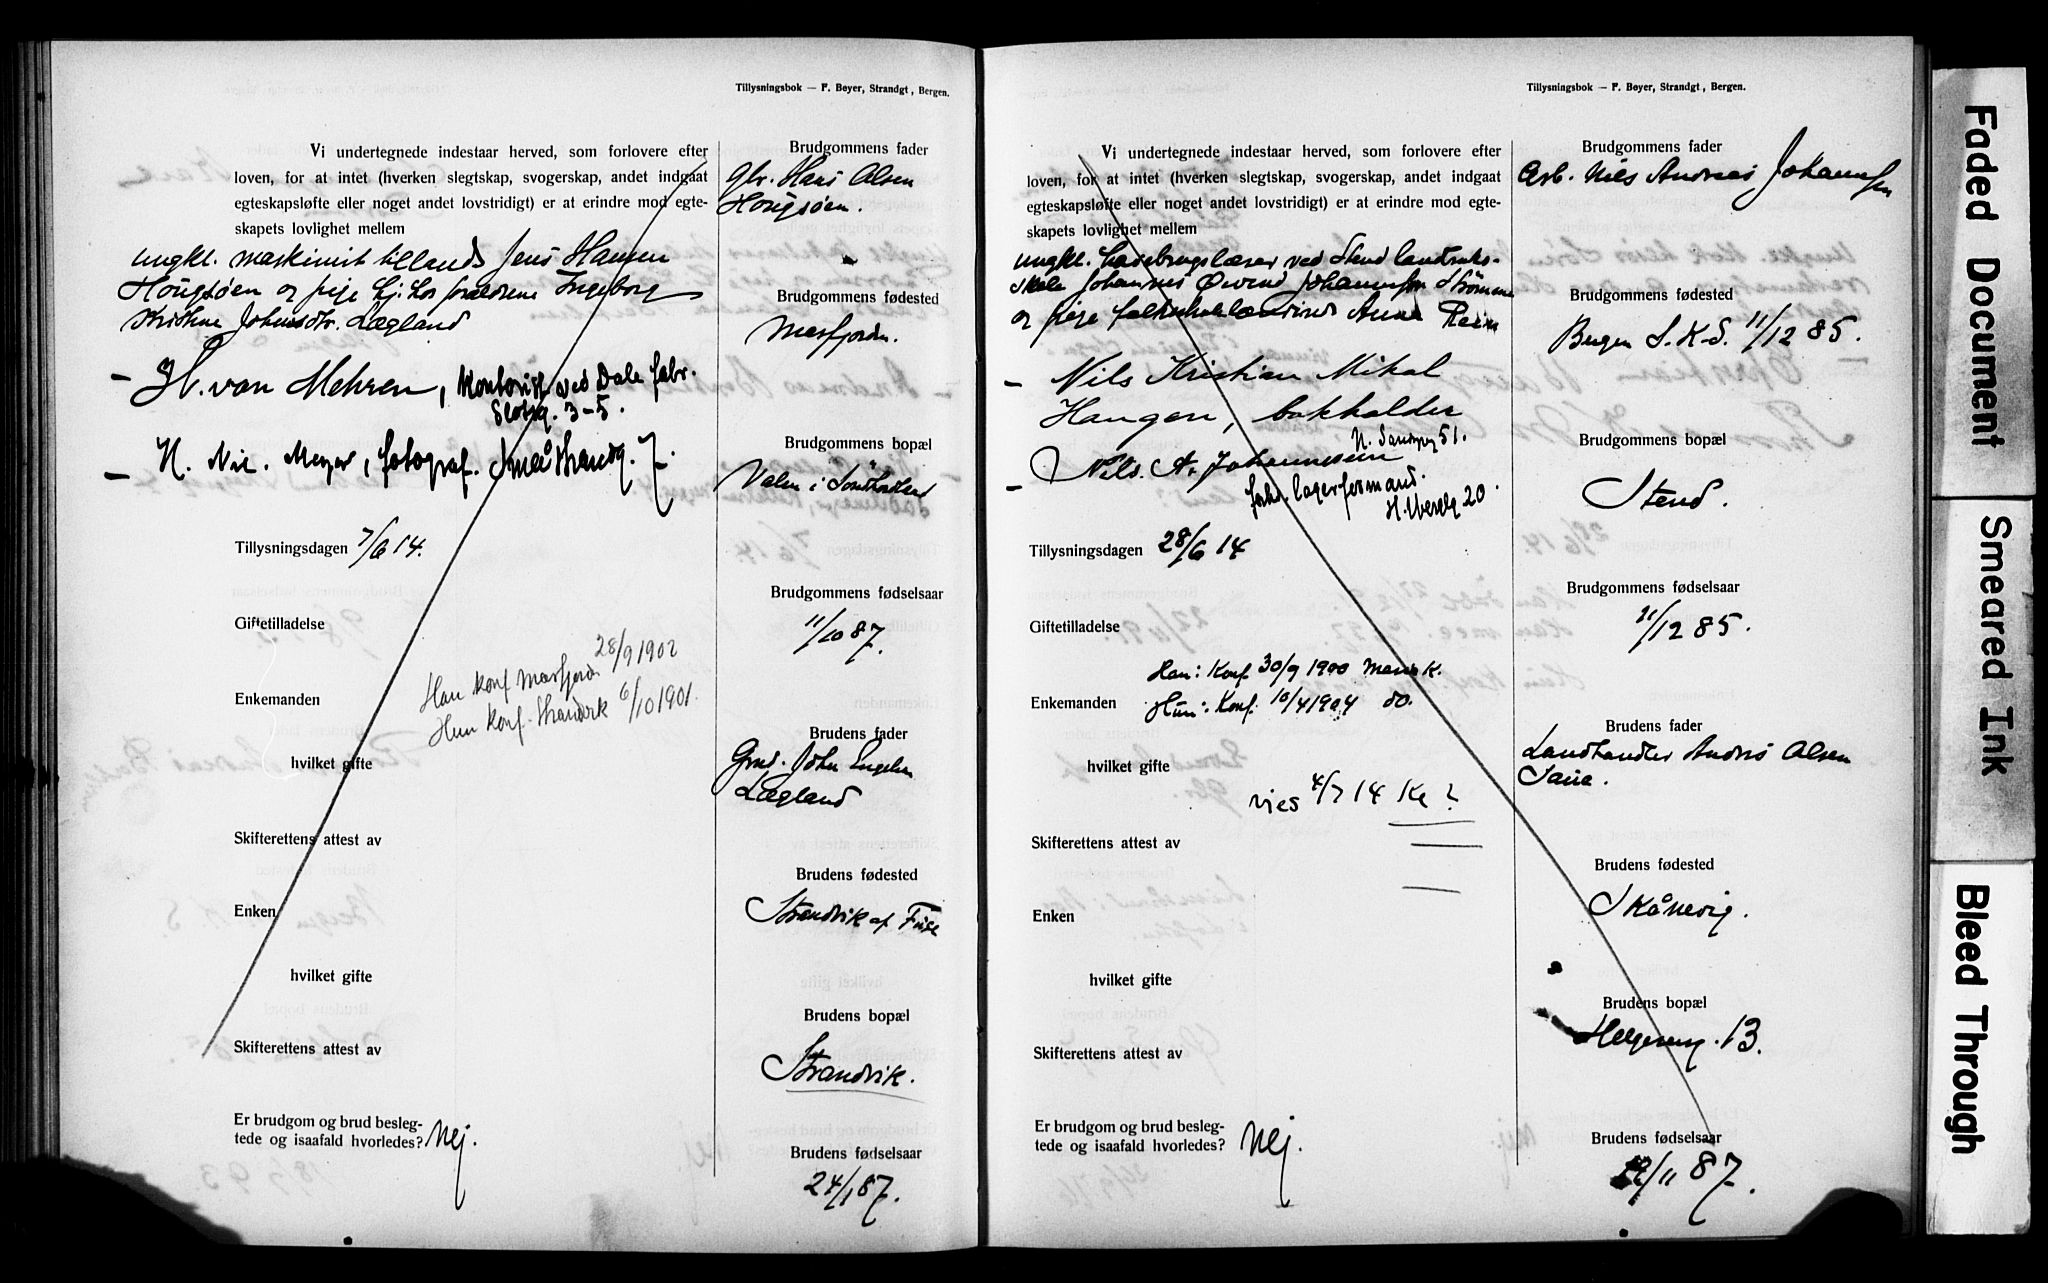 Tillysningsbok — F. Beyer, Strandgt, Bergen.
Vi undertegnede indestaar herved, som forlovere efter
loven, for at intet (hverken slegtskap, svogerskap, andet indgaat
egteskapsløfte eller noget andet lovstridigt) er at erindre mod egte-
skapets lovlighet mellem
ungkl. maskinist tillands Jens Hansen
Hougsøen og pige hj. hos forældrene Ingeborg
Kristine Johnsdtr. Lægland
— H. von Mehren, kontorist ved Dale fabr.
Slotsg. 3-5.
— H. Nic. Meyer, fotograf. Smaastrandg. 7.
Tillysningsdagen 7/6 14.
Giftetilladelse
Han konf Masfjord. 28/9 1902
Enkemanden
Hun konf. Strandvik 6/10 1901.
hvilket gifte
Skifterettens attest av
Enken
hvilket gifte
Skifterettens attest av
Er brudgom og brud besleg-
tede og isaafald hvorledes? Nej.
Brudgommens fader
Gbr. Hans Olsen
Hougsøen.
Brudgommens fødested
Masfjorden.
Brudgommens bopæl
Valen i Söndhordland
Brudgommens fødselsaar
11/10 87.
Brudens fader
Grmd. John Engelsen
Lægland
Brudens fødested
Strandvik af Fuse
Brudens bopæl
Strandvik.
Brudens fødselsaar
24/1 87.
Tillysningsbok — F. Beyer, Strandgt, Bergen.
Vi undertegnede indestaar herved, som forlovere efter
loven, for at intet (hverken slegtskap, svogerskap, andet indgaat
egteskapsløfte eller noget andet lovstridigt) er at erindre mod egte-
skapets lovlighet mellem
ungkl. havebrugslærer ved Stend landbruks-
skole Johannes Øivind Johannessen Strømme
og pige folkeskolelærerinde Anna
— Nils Kristian Mikal
Haugen, bokholder
N. Sandveg 51.
— Nils. A. Johannessen
forh. lagerformand.
20.
Tillysningsdagen 28/6 14
Giftetilladelse
Han: Konf 30/9 1900
Enkemanden
Hun: Konf. 10/4 1904 do.
hvilket gifte
vies 4/7 14 Kl ?
Skifterettens attest av
Enken
hvilket gifte
Skifterettens attest av
Er brudgom og brud besleg-
tede og isaafald hvorledes? Nej.
Brudgommens fader
Arb. Nils Andreas Johannessen
Brudgommens fødested
Bergen S.K.S. 11/12 85.
Brudgommens bopæl
Stend.
Brudgommens fødselsaar
11/12 85.
Brudens fader
Landhandler Andreas Olsen
Brudens fødested
Skånevig.
Brudens bopæl
Helgesensg. 13.
Brudens fødselsaar
/11 87.
Faded Document
Smeared Ink
Bleed Through